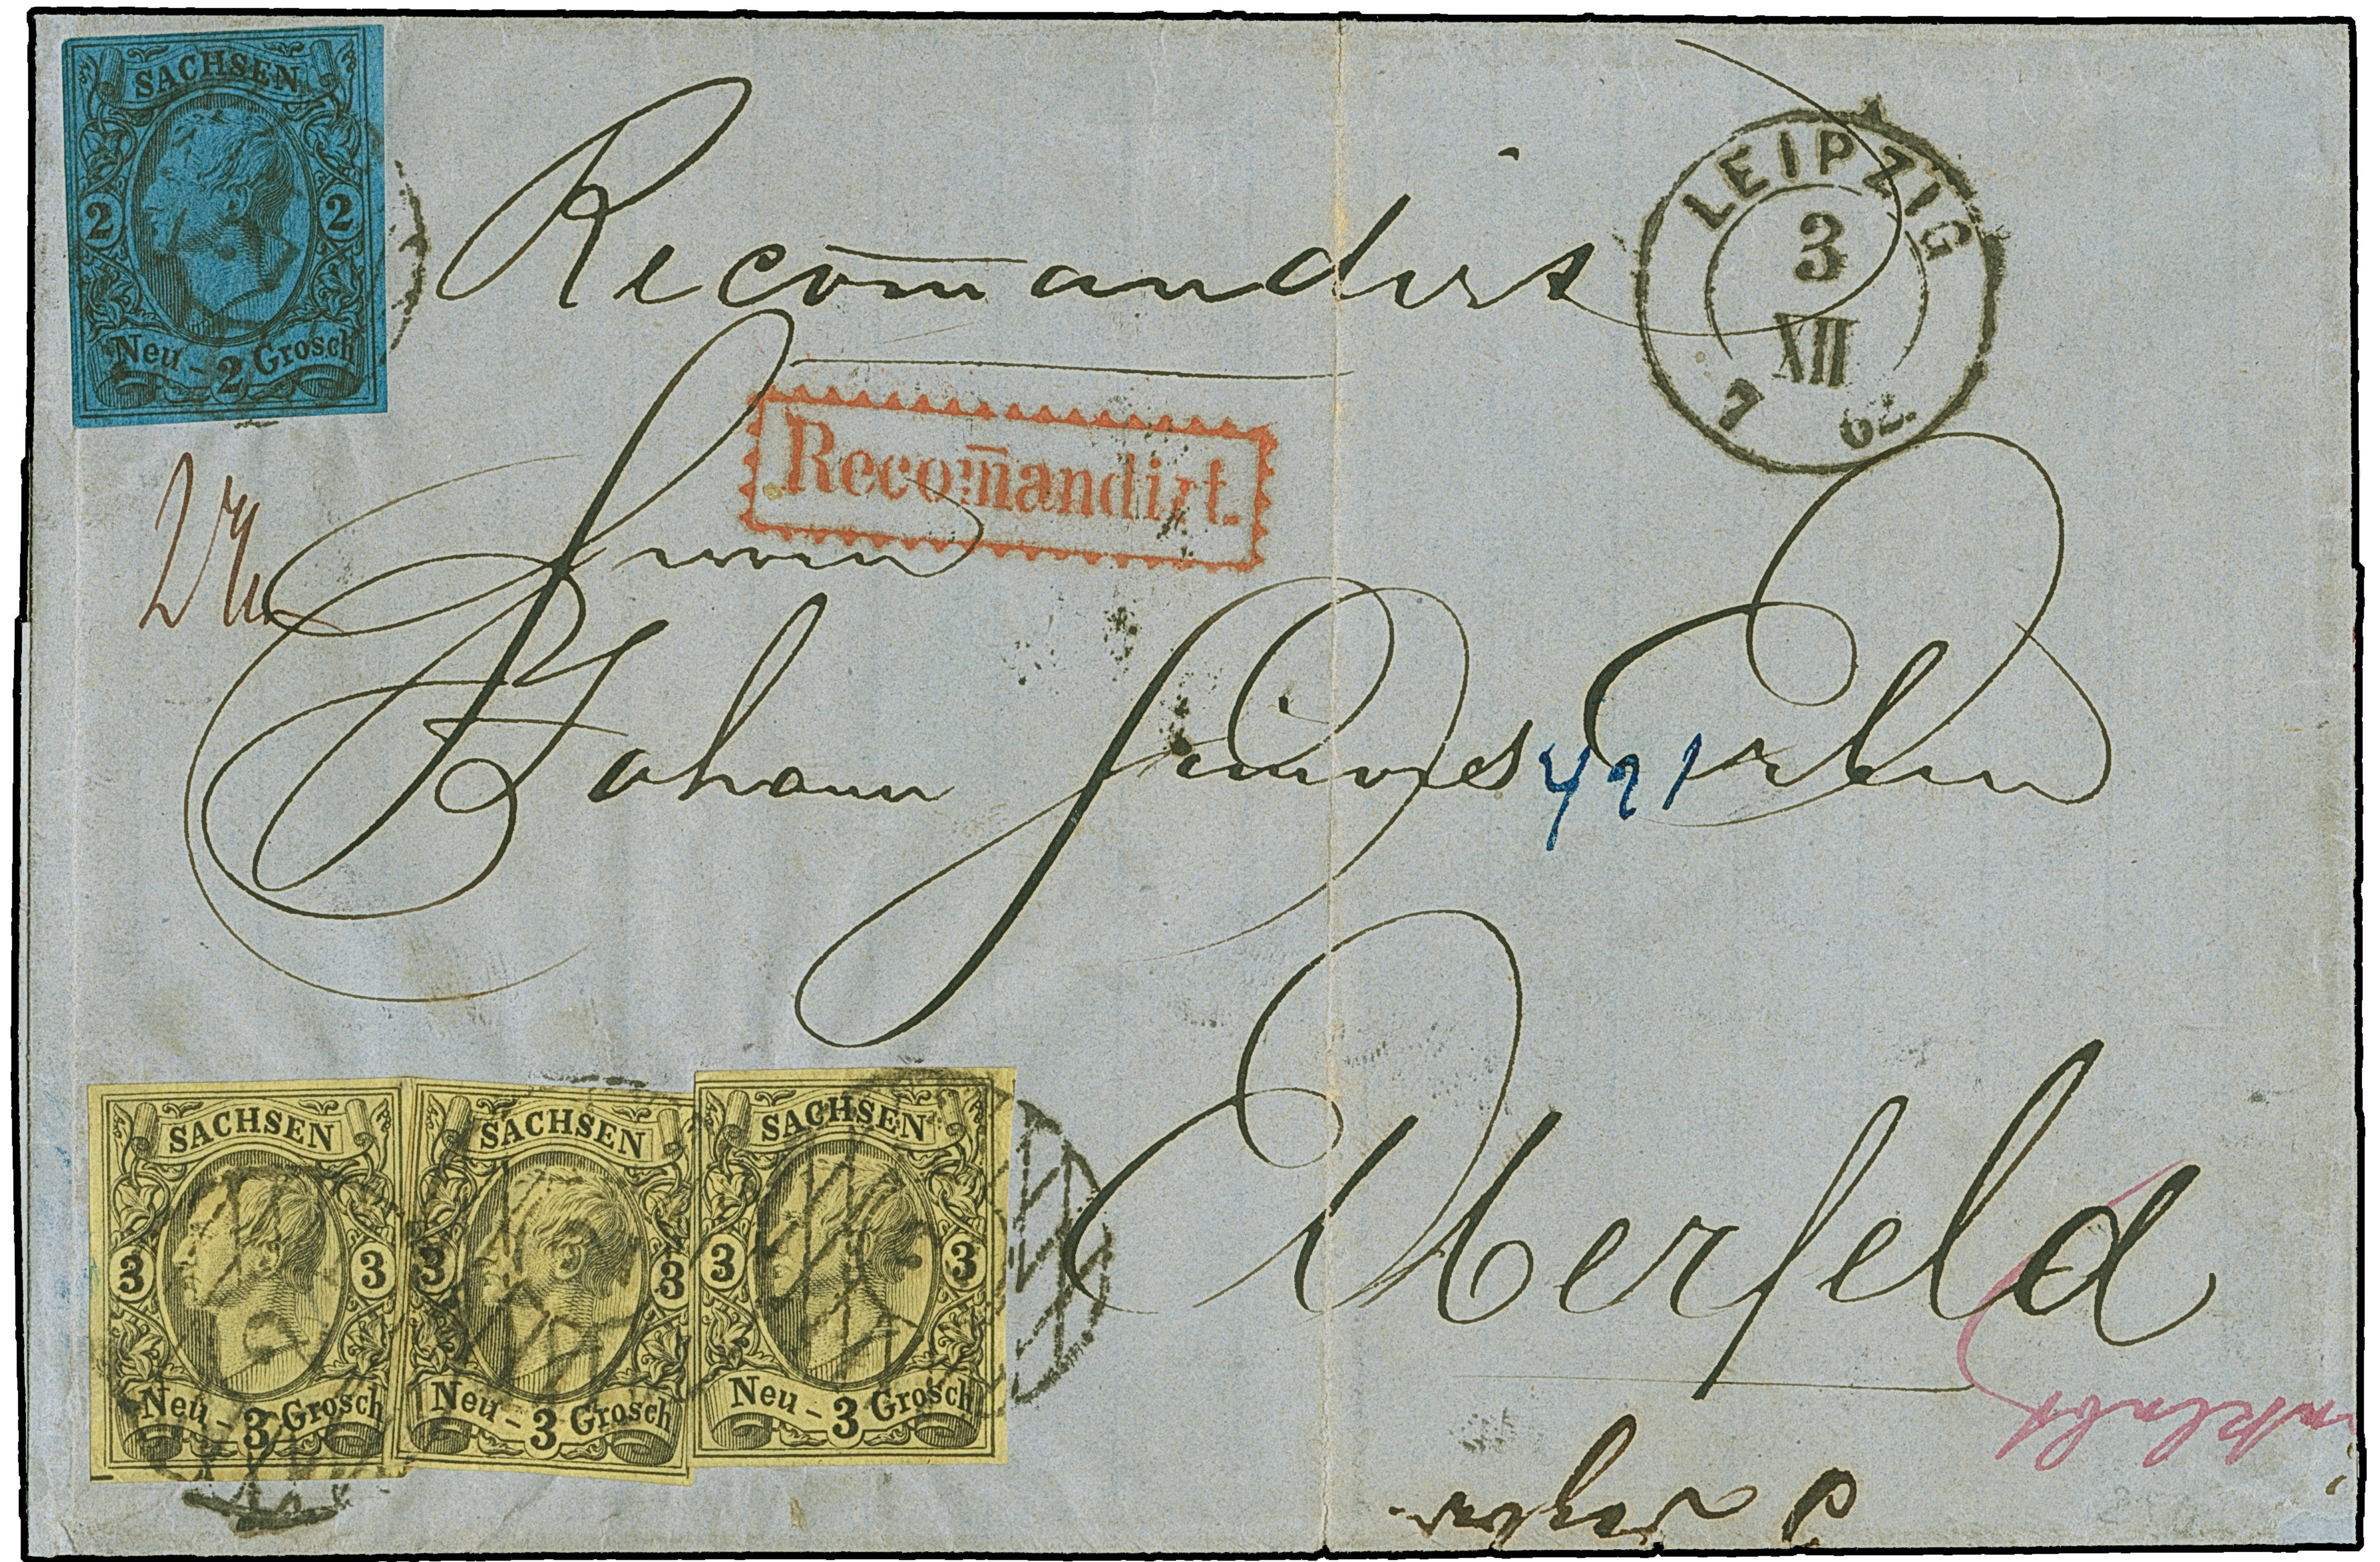 SACHSEN
2 2
Neu - 2 Grosch
Recom̅andirt
LEIPZIG
3
XII
7 62.
Recom̅andirt.
Herrn
Johann
421
Elberfeld
SACHSEN SACHSEN SACHSEN
3 3 3 3 3 3
Neu - 3 Grosch Neu - 3 Grosch Neu - 3 Grosch